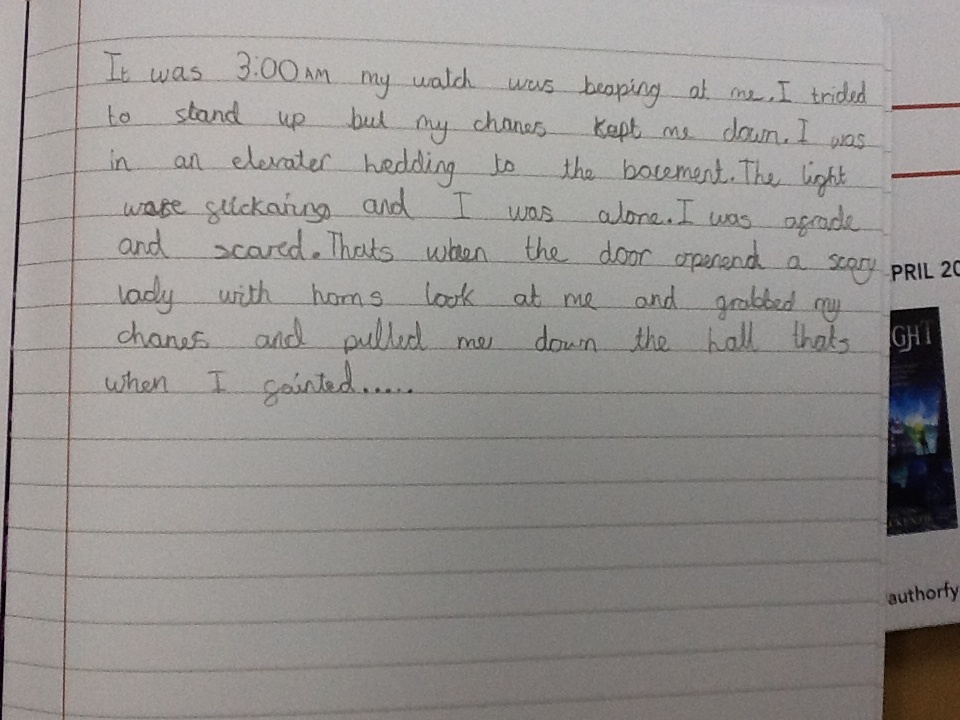 It was 3:00AM my watch was beaping at me. I trided
to stand up but my chanes kept me down. I was
in an elevater hedding to the bacement. The light
ware flickaring and I was alone. I was afrade
and scared. Thats when the door openend a scary
lady with horns look at me and grabbed my
chanes and pulled me down the hall thats
when I fainted.....
PRIL 20
GHT
authorfy